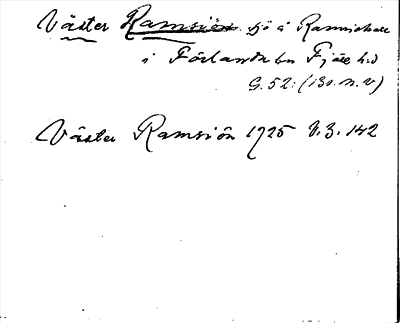 Väster Ramsiön sjö å Ramsiskalle
i Förlanda sn Fjäre hd
G.52: (130.n.v)
Väster Ramsiön 1725 V.3.142